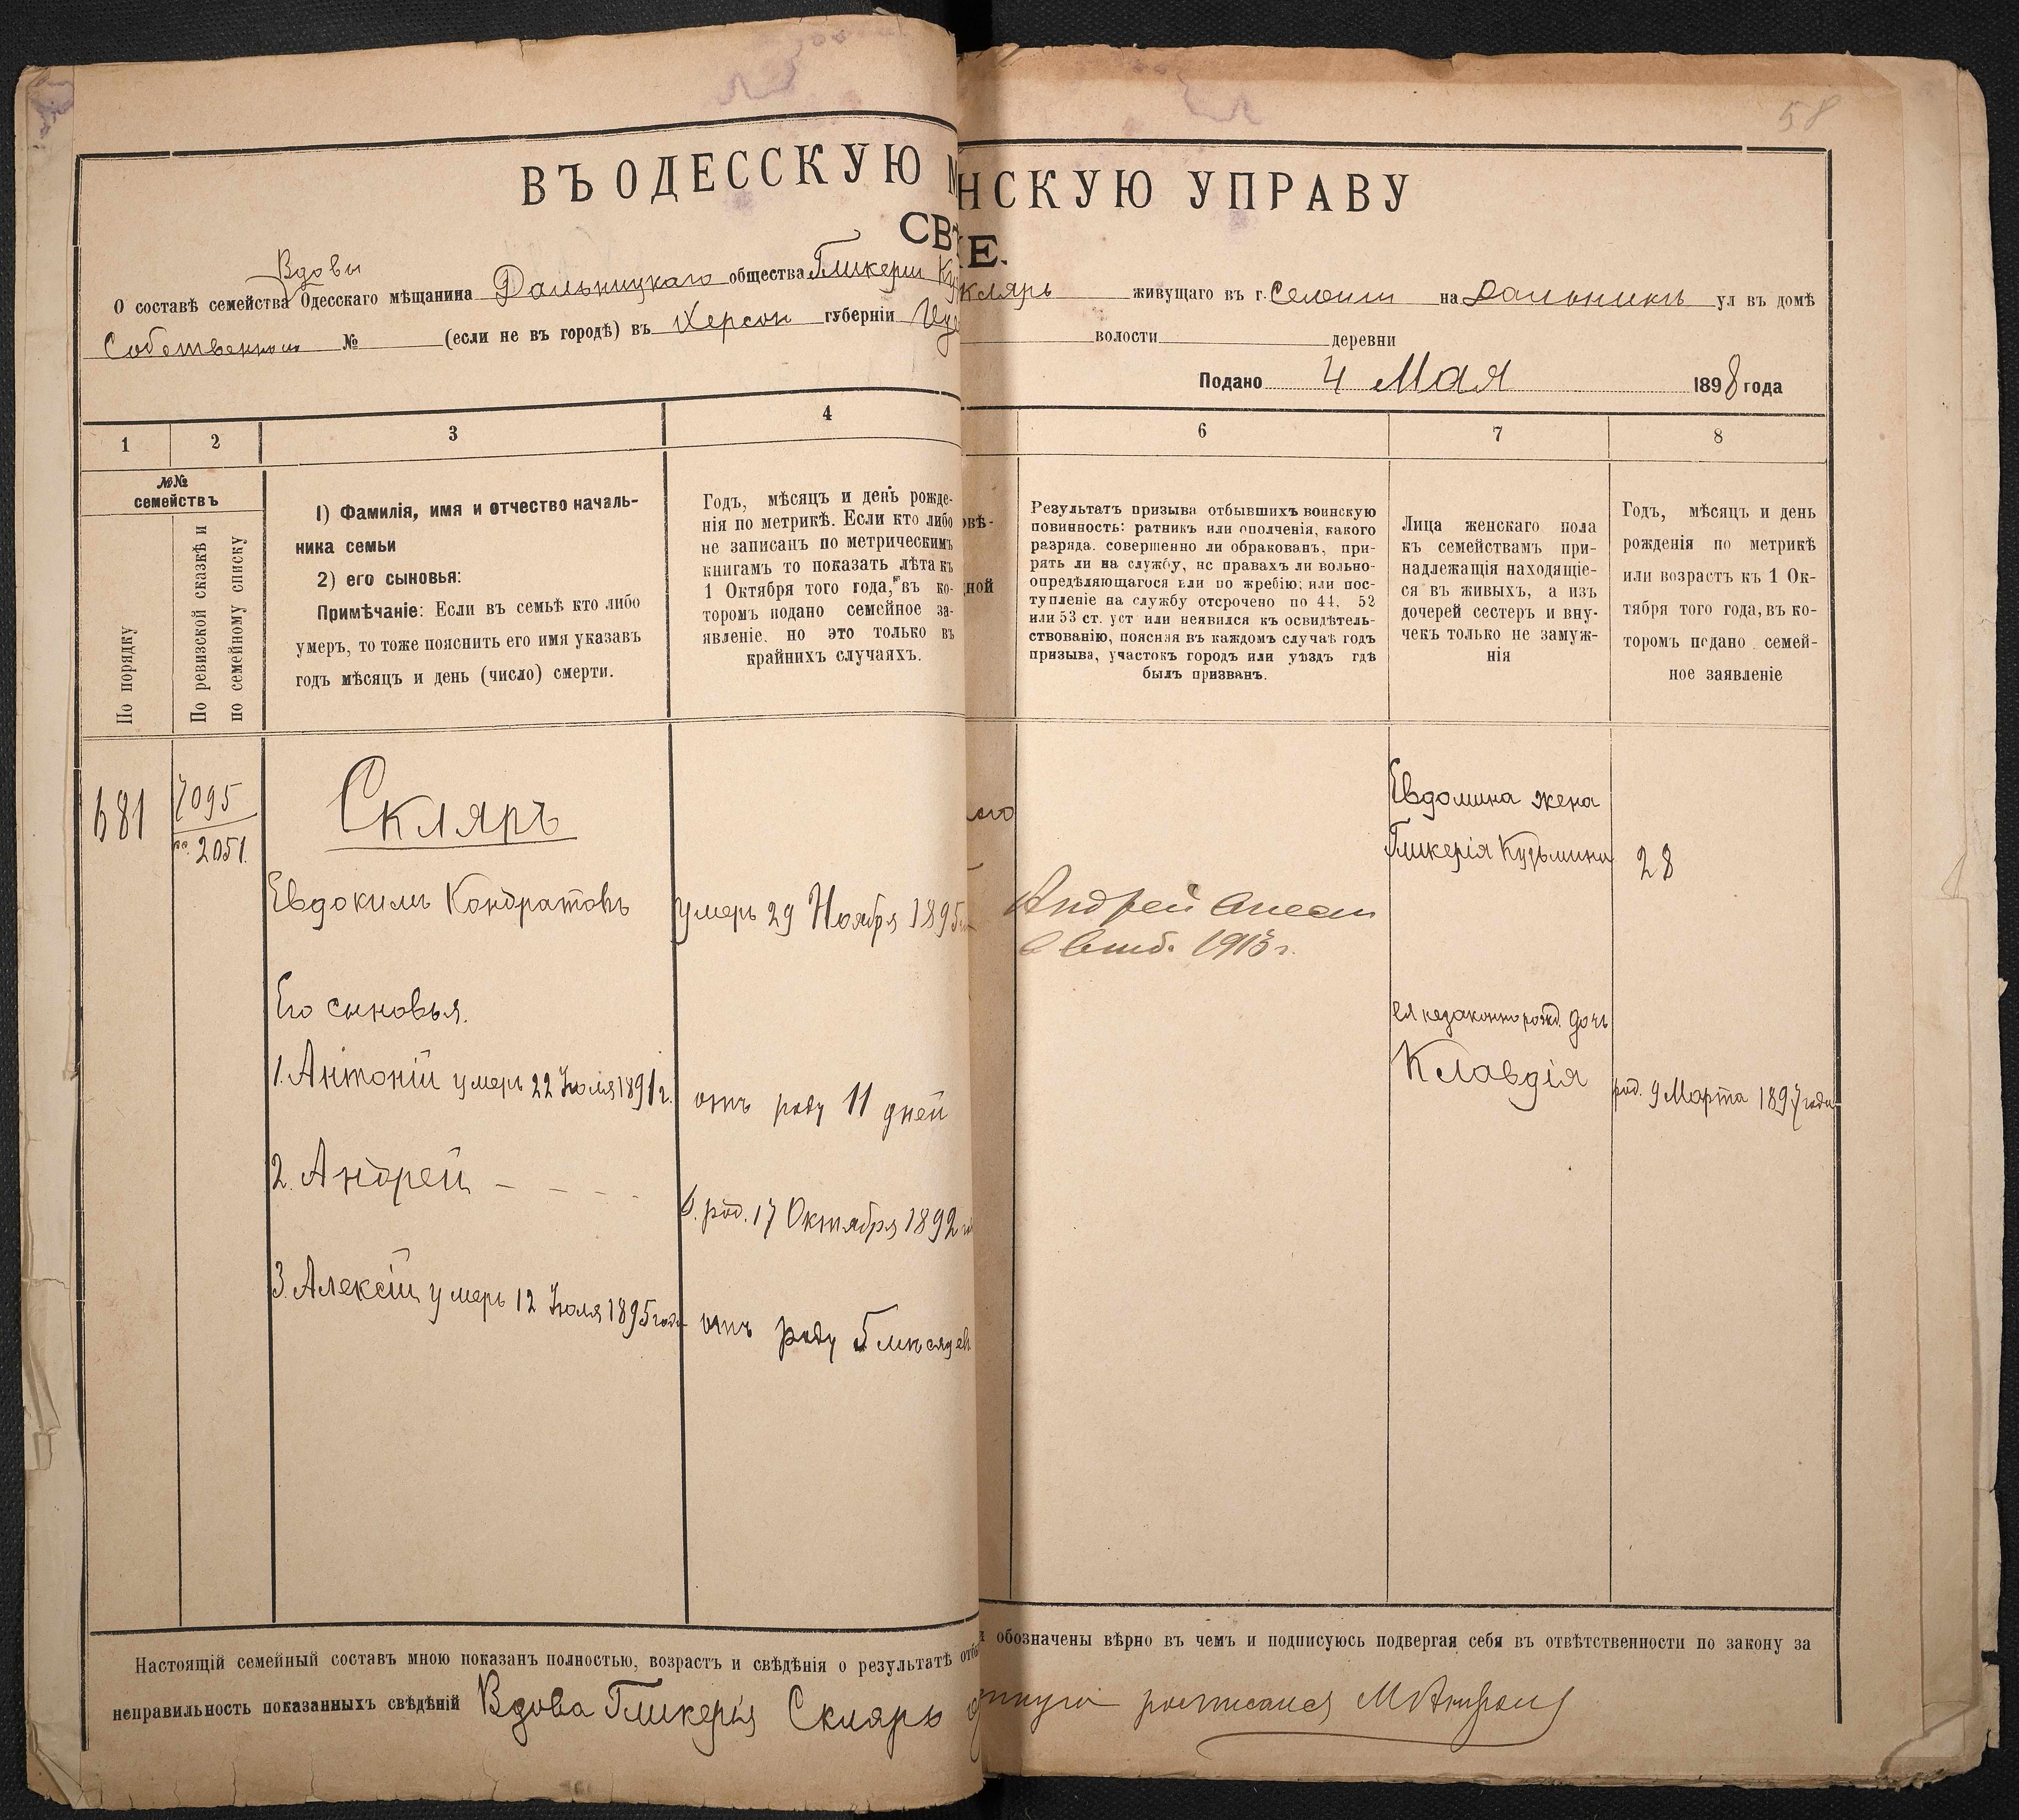 58
ВЪ ОДЕССКУЮ НСКУЮ УПРАВУ
СВ Е.
Вдовы
О составѣ семейства Одесскаго мѣщанина Дальницкаго общества Гликеріи Ку кляръ живущаго въ г. Селеніи на Дальникъ ул въ домѣ
Собственном № (если не въ городѣ) въ Херсон губерніи волости деревни
Подано 4 Мая 1898 года
1 2 3 4 6 7 8
№№ семействъ
По порядку
По ревизской сказкѣ и по семейному списку
1) Фамилія, имя и отчество началь-
ника семьи
2) его сыновья:
Примѣчаніе: Если въ семьѣ кто либо
умеръ, то тоже пояснить его имя указавъ
годъ мѣсяцъ и день (число) смерти.
Годъ, мѣсяцъ и день рожде-
нія по метрикѣ. Если кто либо
не записанъ по метрическимъ
книгамъ то показать лѣта къ
1 Октября того года, въ ко-
торомъ подано семейное за-
явленіе. но это только въ
крайнихъ случаяхъ.
овѣ-
ной
Результатъ призыва отбывшихъ воинскую
повинность: ратникъ или ополченія, какого
разряда. совершенно ли обракованъ, при-
рять ли на службу, нс правахъ ли вольно-
опредѣляющагося или по жребію; или пос-
тупленіе на службу отсрочено по 44. 52
или 53 ст. уст или неявился къ освидѣтель-
ствованію, поясняя въ каждомъ случаѣ годъ
призыва, участокъ городъ или уѣздъ гдѣ
былъ призванъ.
Лица женскаго пола
къ семействамъ при-
надлежащія находящіе-
ся въ живыхъ, а изъ
дочерей сестеръ и вну-
чекъ только не замуж-
нія
Годъ, мѣсяцъ и день
рожденія по метрикѣ
или возрастъ къ 1 Ок-
тября того года, въ ко-
торомъ подано семей-
ное заявленіе
681
7095
2051.
Скляръ
Евдокимъ Кондратовъ
умеръ 29 Ноября 1895
Его сыновья.
1. Антоній умеръ 22 Іюля 1891 г.
отъ роду 11 дней
2. Андрей
род. 17 Октября 1892
3. Алексѣй умеръ 12 Іюля 1895 года
отъ роду 5 мѣсяцев
Андрей
1913 г.
Евдокима жена
Гликерія Кузьмина
28
ея незаконнорожд. дочь
Клавдія
род. 9 Марта 1897 года
Настоящій семейный составъ мною показанъ полностью, возрастъ и свѣдѣнія о результатѣ отбы обозначены вѣрно въ чемъ и подписуюсь подвергая себя въ отвѣтственности по закону за
неправильность показанныхъ свѣдѣній Вдова Гликерія Скляръ росписался